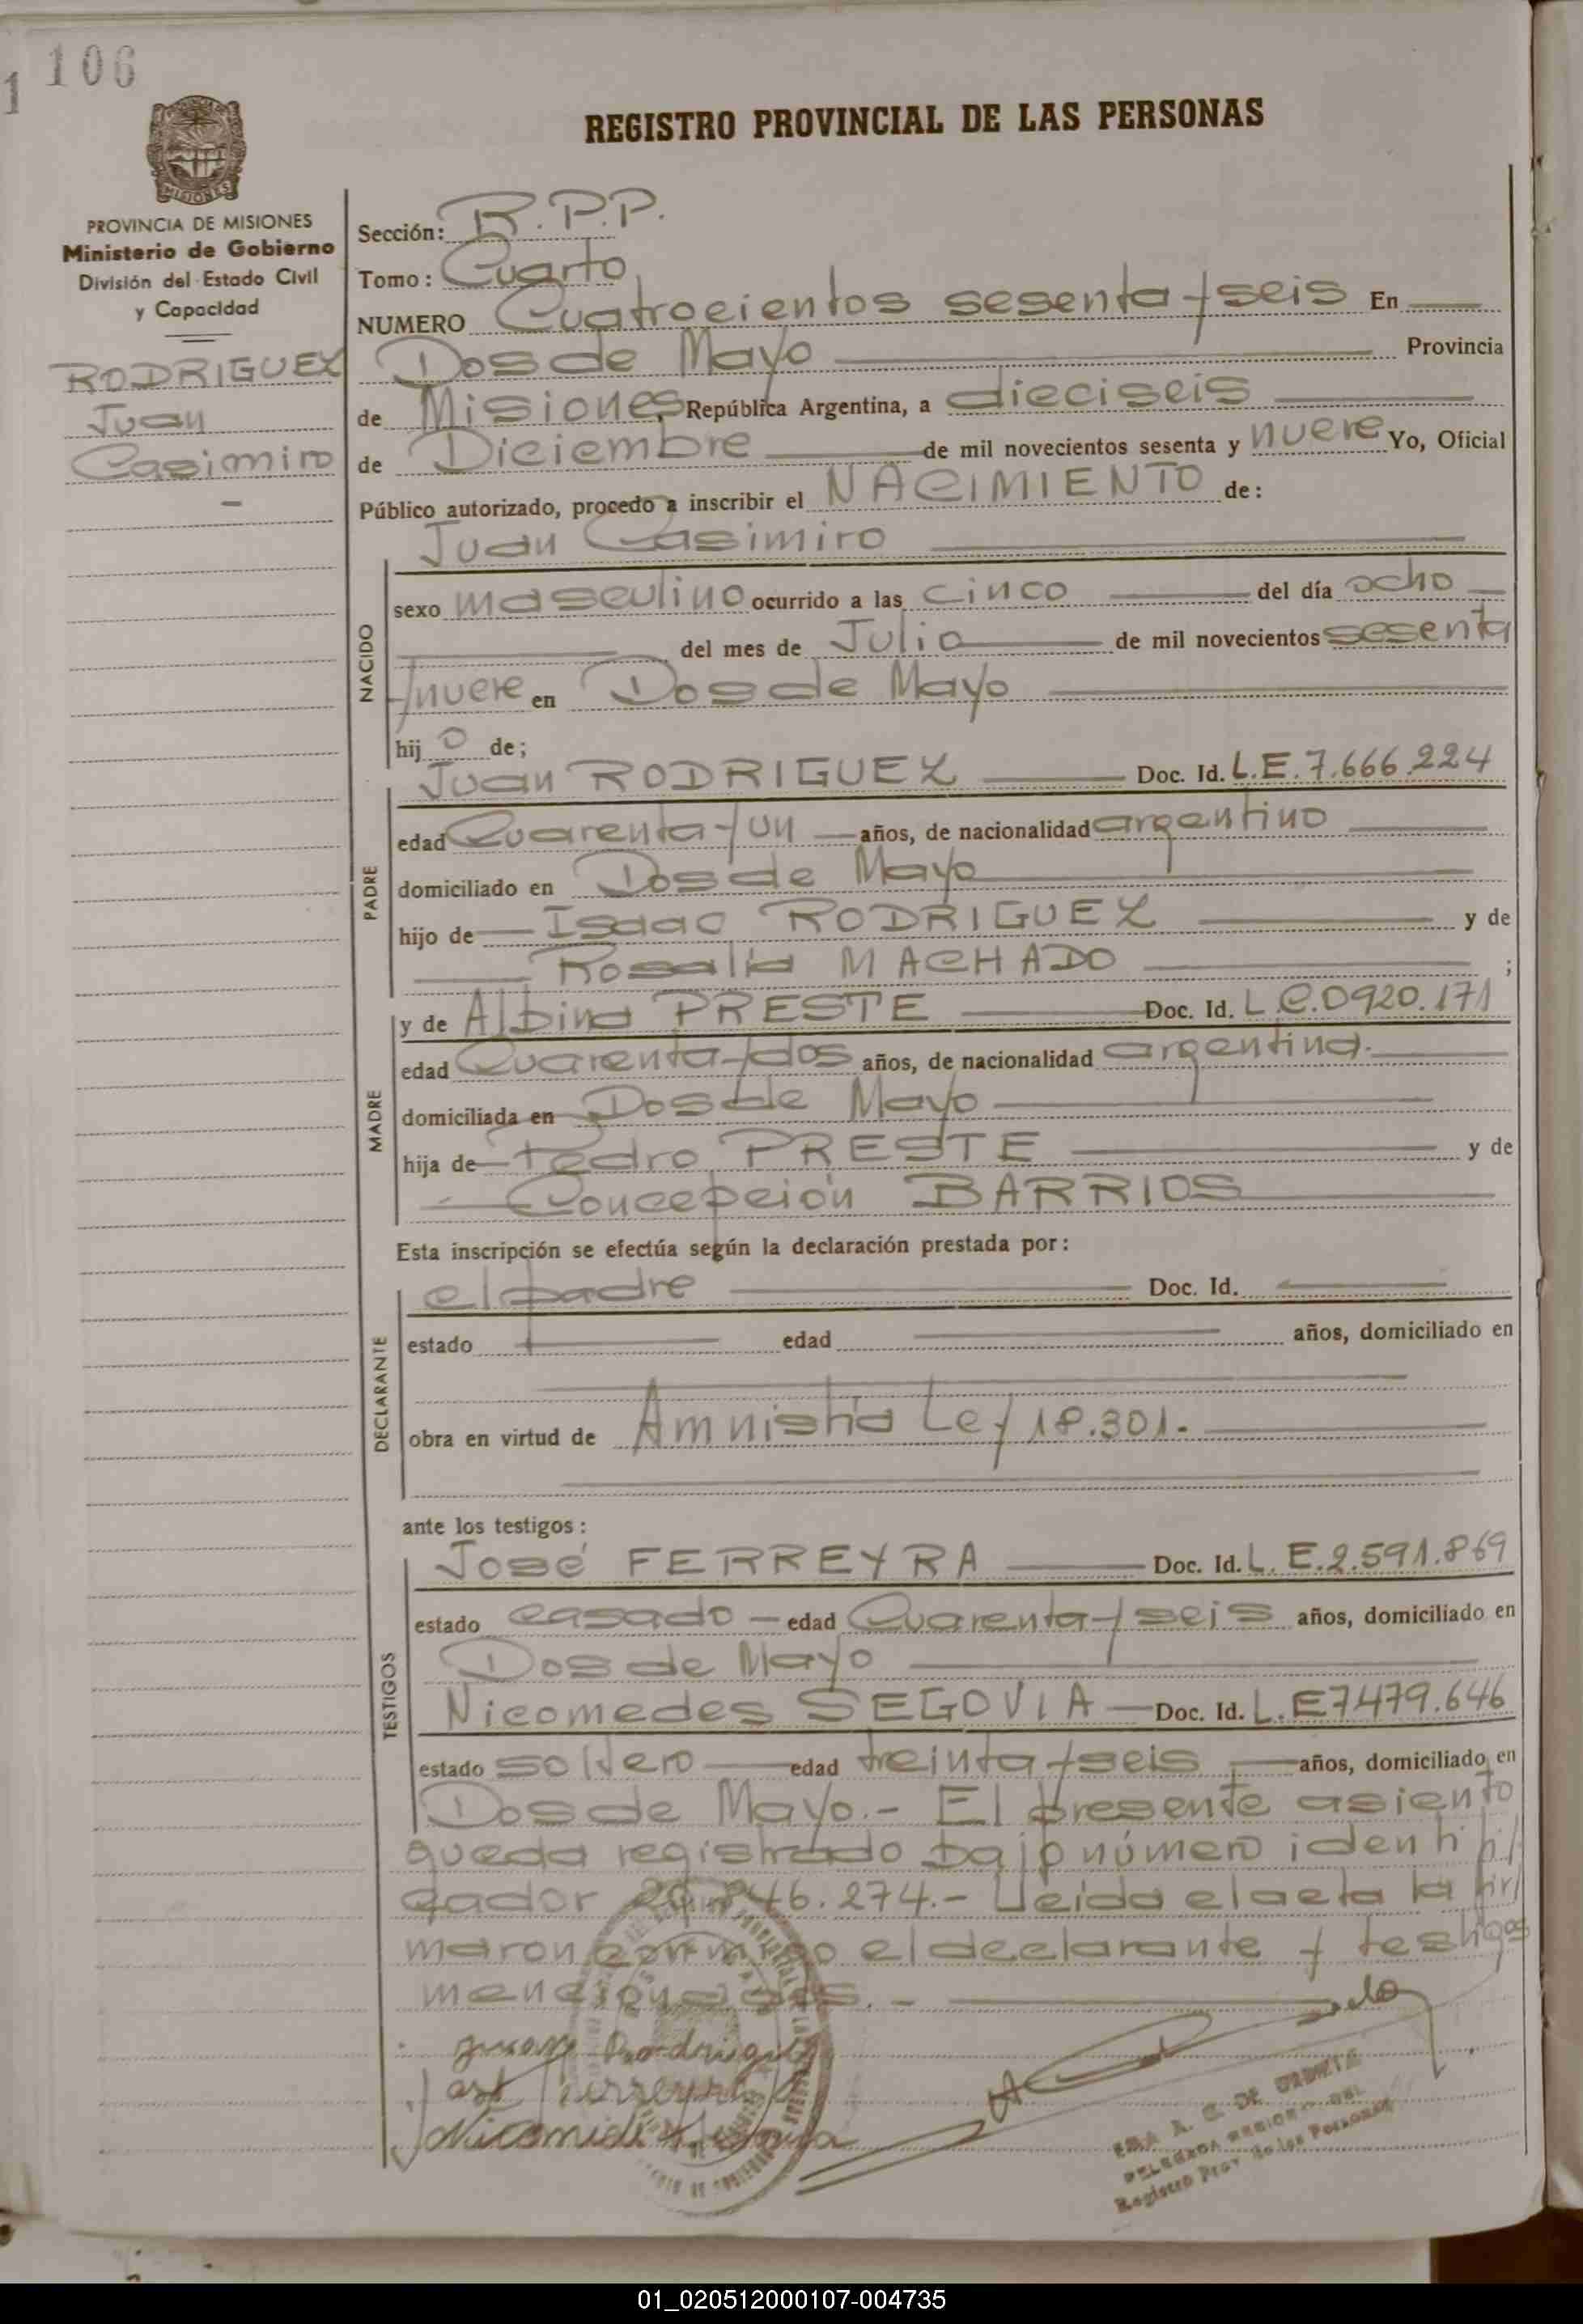 106
1
REGISTRO PROVINCIAL DE LAS PERSONAS
MISIONES
PROVINCIA DE MISIONES
Ministerio de Gobierno
División del Estado Civil
y Capacidad
RODRIGUEZ
Juan
Casimiro
Sección: R.P.P.
Tomo: Cuarto
NUMERO Cuatrocientos sesenta y seis En
Dos de Mayo Provincia
de Misiones República Argentina, a dieciseis
de Diciembre de mil novecientos sesenta y nueve Yo, Oficial
Público autorizado, procedo a inscribir el NACIMIENTO de:
Juan Casimiro
NACIDO
sexo masculino ocurrido a las cinco del día ocho
del mes de Julio de mil novecientos sesenta
y nueve en Dos de Mayo
hijo de;
PADRE
Juan RODRIGUEZ Doc. Id. L.E. 7.666.224
edad Cuarenta y un años, de nacionalidad argentino
domiciliado en Dos de Mayo
hijo de Isaac RODRIGUEZ y de
Rosalia MACHADO ;
MADRE
y de Albina PRESTE Doc. Id. L.C.0920.171
edad Cuarenta y dos años, de nacionalidad argentina.
domiciliada en Dos de Mayo
hija de Pedro PRESTE y de
Concepción BARRIOS
Esta inscripción se efectúa según la declaración prestada por:
DECLARANTE
el padre Doc. Id.
estado edad años, domiciliado en
obra en virtud de Amnistia Ley 18.301.-
ante los testigos:
TESTIGOS
José FERREYRA Doc. Id. L.E.2.591.869
estado casado - edad Cuarenta y seis años, domiciliado en
Dos de Mayo
Nicomedes SEGOVIA Doc. Id. L.E7479.646
estado soltero edad treinta y seis años, domiciliado en
Dos de Mayo.- El presente asiento
queda registrado bajo número identifi
cador 846.274.- Leida el acta la fir
maron conmigo el declarante y testigos
mencionados.-
Juan Rodriguez
José Ferreyra
Nicomedes Segovia
A. C. DE
DELEGADA
Registro Prov. de las Personas
01_020512000107-004735